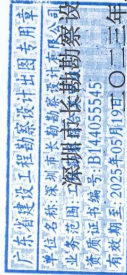 广东省建设工程勘察设计出图专用章
单位名称:深圳市长勘勘察设计有限公司
业务范围:
深圳市长勘勘察设
资质证书编号:B144055545
有效期至:2025年05月19日
〇二三年